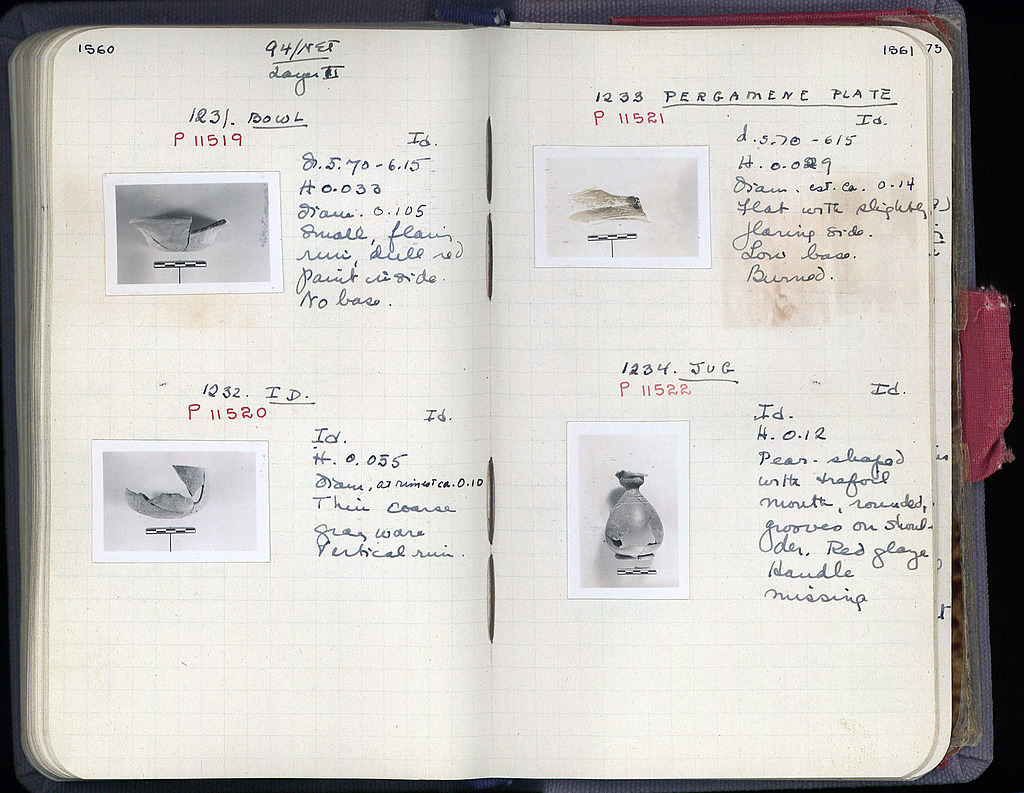 1560
94/ΝΕΤ
Layer II
1231. BOWL
P 11519
Id.
D. 5.70 - 6.15
H 0.033
Diam. 0.105
Small, flaring
rim, dull red
paint inside.
No base.
1232. ID.
P 11520
Id.
Id.
H. 0.055
Diam. at rim est ca. 0.10
Thin coarse
gray ware
Vertical rim.
1561
73
1233 PERGAMENE PLATE
P 11521
Id.
d. 5.70 - 615
H. 0.029
Diam. est. ca. 0.14
Flat with slightly
flaring side.
Low base.
Burned.
1234. JUG
P 11522
Id.
Id.
H. 0.12
Pear-shaped
with trefoil
mouth, rounded,
grooves on shoul-
der. Red glaze
Handle
missing